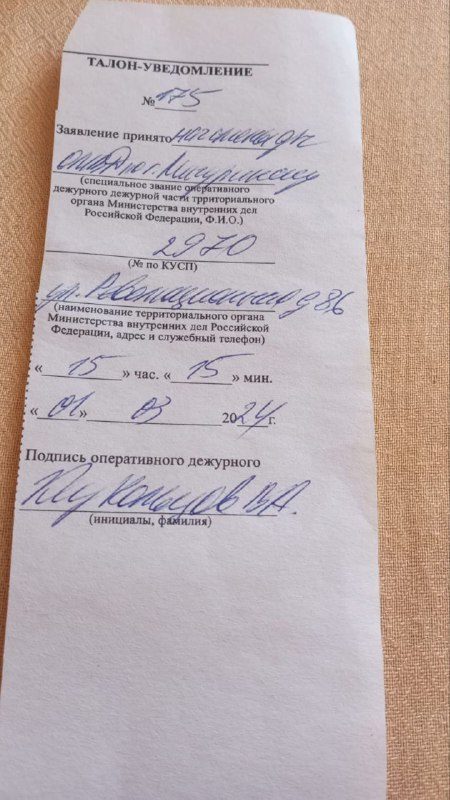 ТАЛОН-УВЕДОМЛЕНИЕ
№ 175
Заявление принято
ОМВД по г.
(специальное звание оперативного
дежурного дежурной части территориального
органа Министерства внутренних дел
Российской Федерации, Ф.И.О.)
2970
(№ по КУСП)
ул. Революционная д 86
(наименование территориального органа
Министерства внутренних дел Российской
Федерации, адрес и служебный телефон)
« 15 » час. « 15 » мин.
« 01 » 03 2024 г.
Подпись оперативного дежурного
В.А.
(инициалы, фамилия)